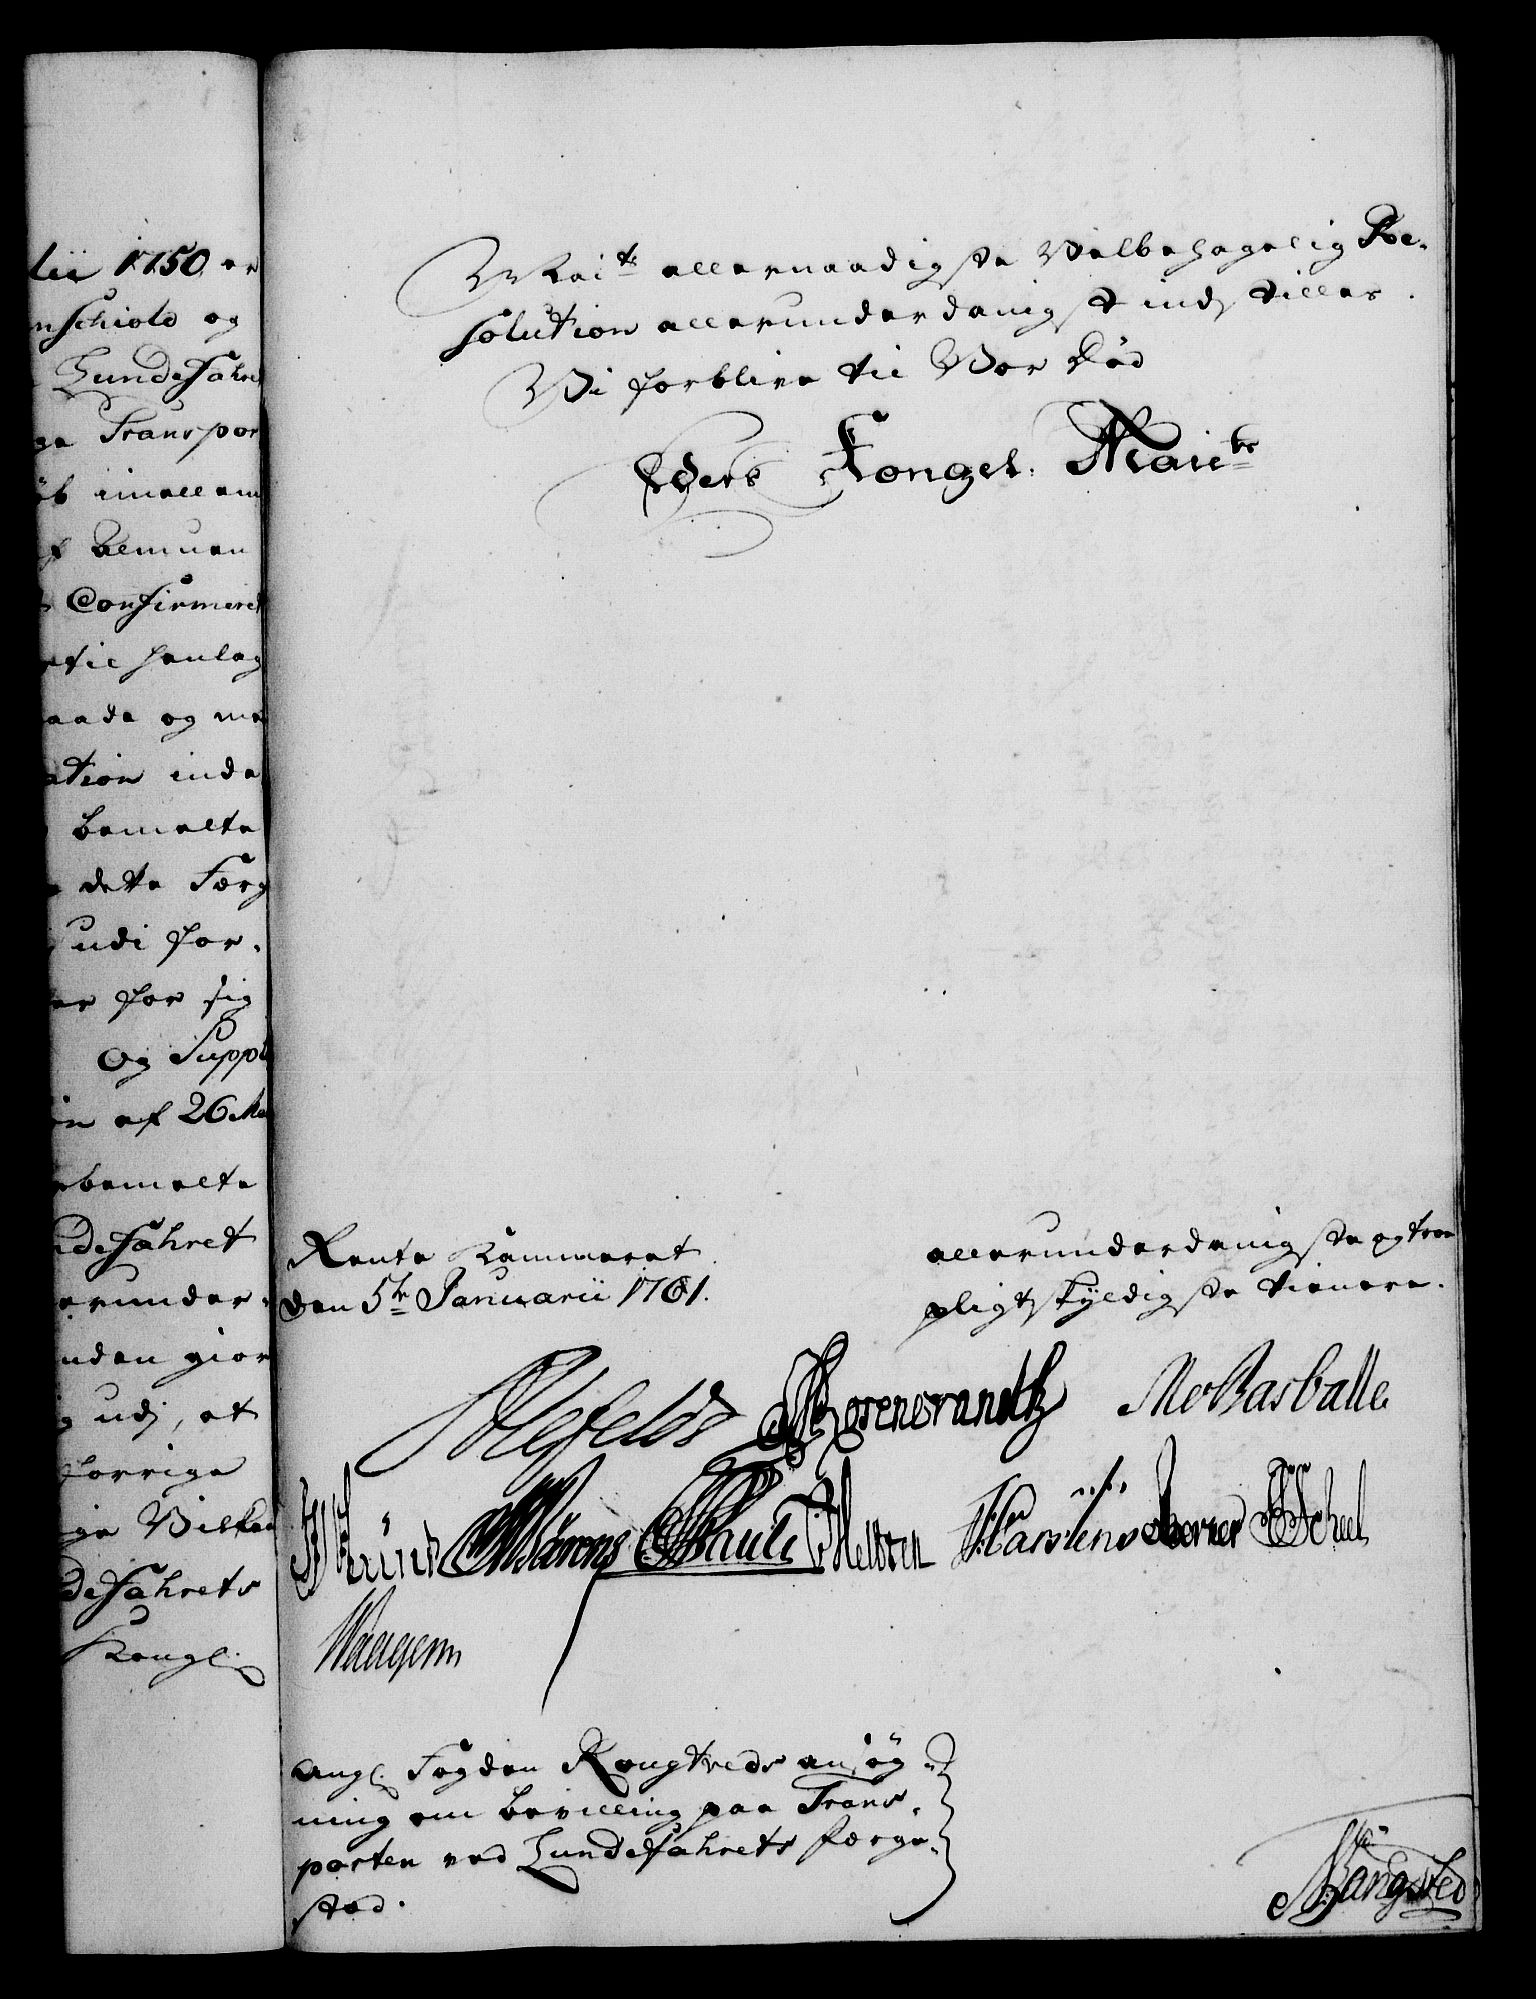 lii 1750 er
nschiold og
Lundefähre
ge Transpor
øb imellem
af
Confirmeret
etil henlag
aade og me
ation inde
bemelte
dette Færg
udi for-
er for sig
Og Suppl
in af 26 Ma
bemelte
defähret
erunder-
nden giør
g udj, at
forrige
ge Vilkaa
defährets
Kongl.
Mai:ts allernaadigste Velbehagelig Re-
solution allerunderdanigst indstilles.
Vi forblive til Vor Død
Eders Kongel. Maii:ts
Rente Kammeret
den 5te Januarii 1761.
allerunderdanigste og troe
pligtskyldigste tienere.
Ahlefeldt Rosencrantz Barballe
Pauli Carstens Berner Scheel
Angl. Fogden Rougtveds ansøg-
ning om bevilling paa Trans-
porten ved Lundefährets færge-
stæd.
Bangsted